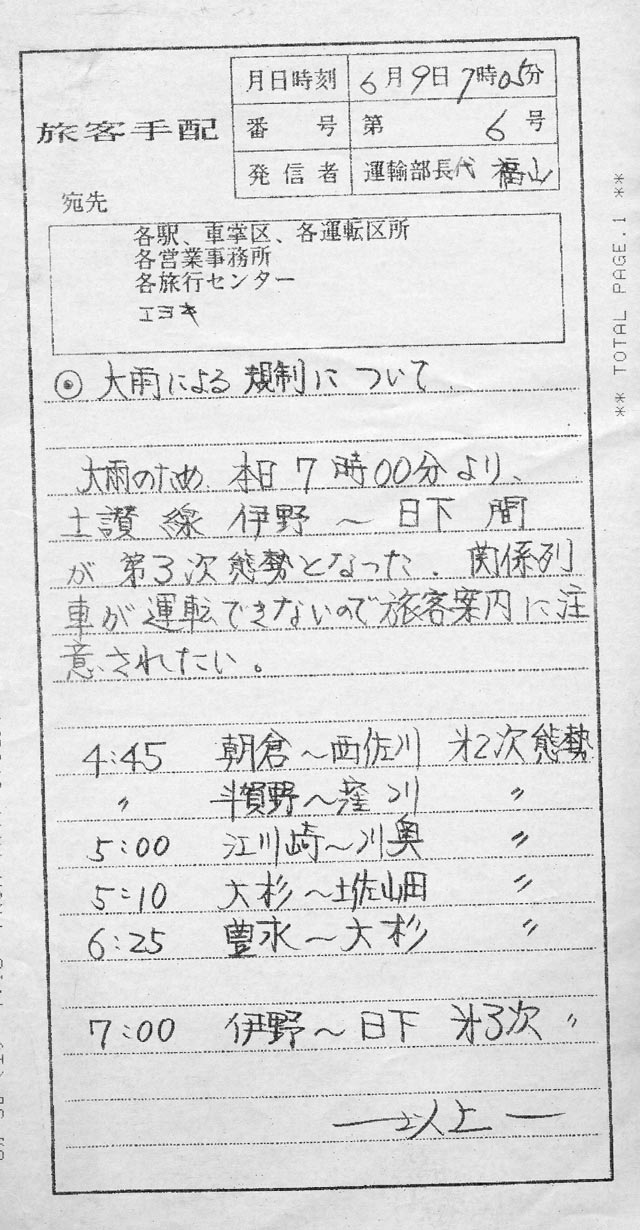 旅客手配
月日時刻 6月9日7時05分
番号 第 6号
発信者 運輸部長代 福山
宛先
各駅、車掌区、各運転区所
各営業事務所
各旅行センター
エヨキ
◉ 大雨による規制について.
大雨のため 本日7時00分より、
土讃線 伊野〜日下間
が第3次態勢となった. 関係列
車が運転できないので旅客案内に注
意されたい。
4:45 朝倉〜西佐川 㐧2次態勢
〃 斗賀野〜窪川 〃
5:00 江川崎〜川奥 〃
5:10 大杉〜土佐山田 〃
6:25 豊永〜大杉 〃
7:00 伊野〜日下 㐧3次 〃
―以上―
** TOTAL PAGE.1 **